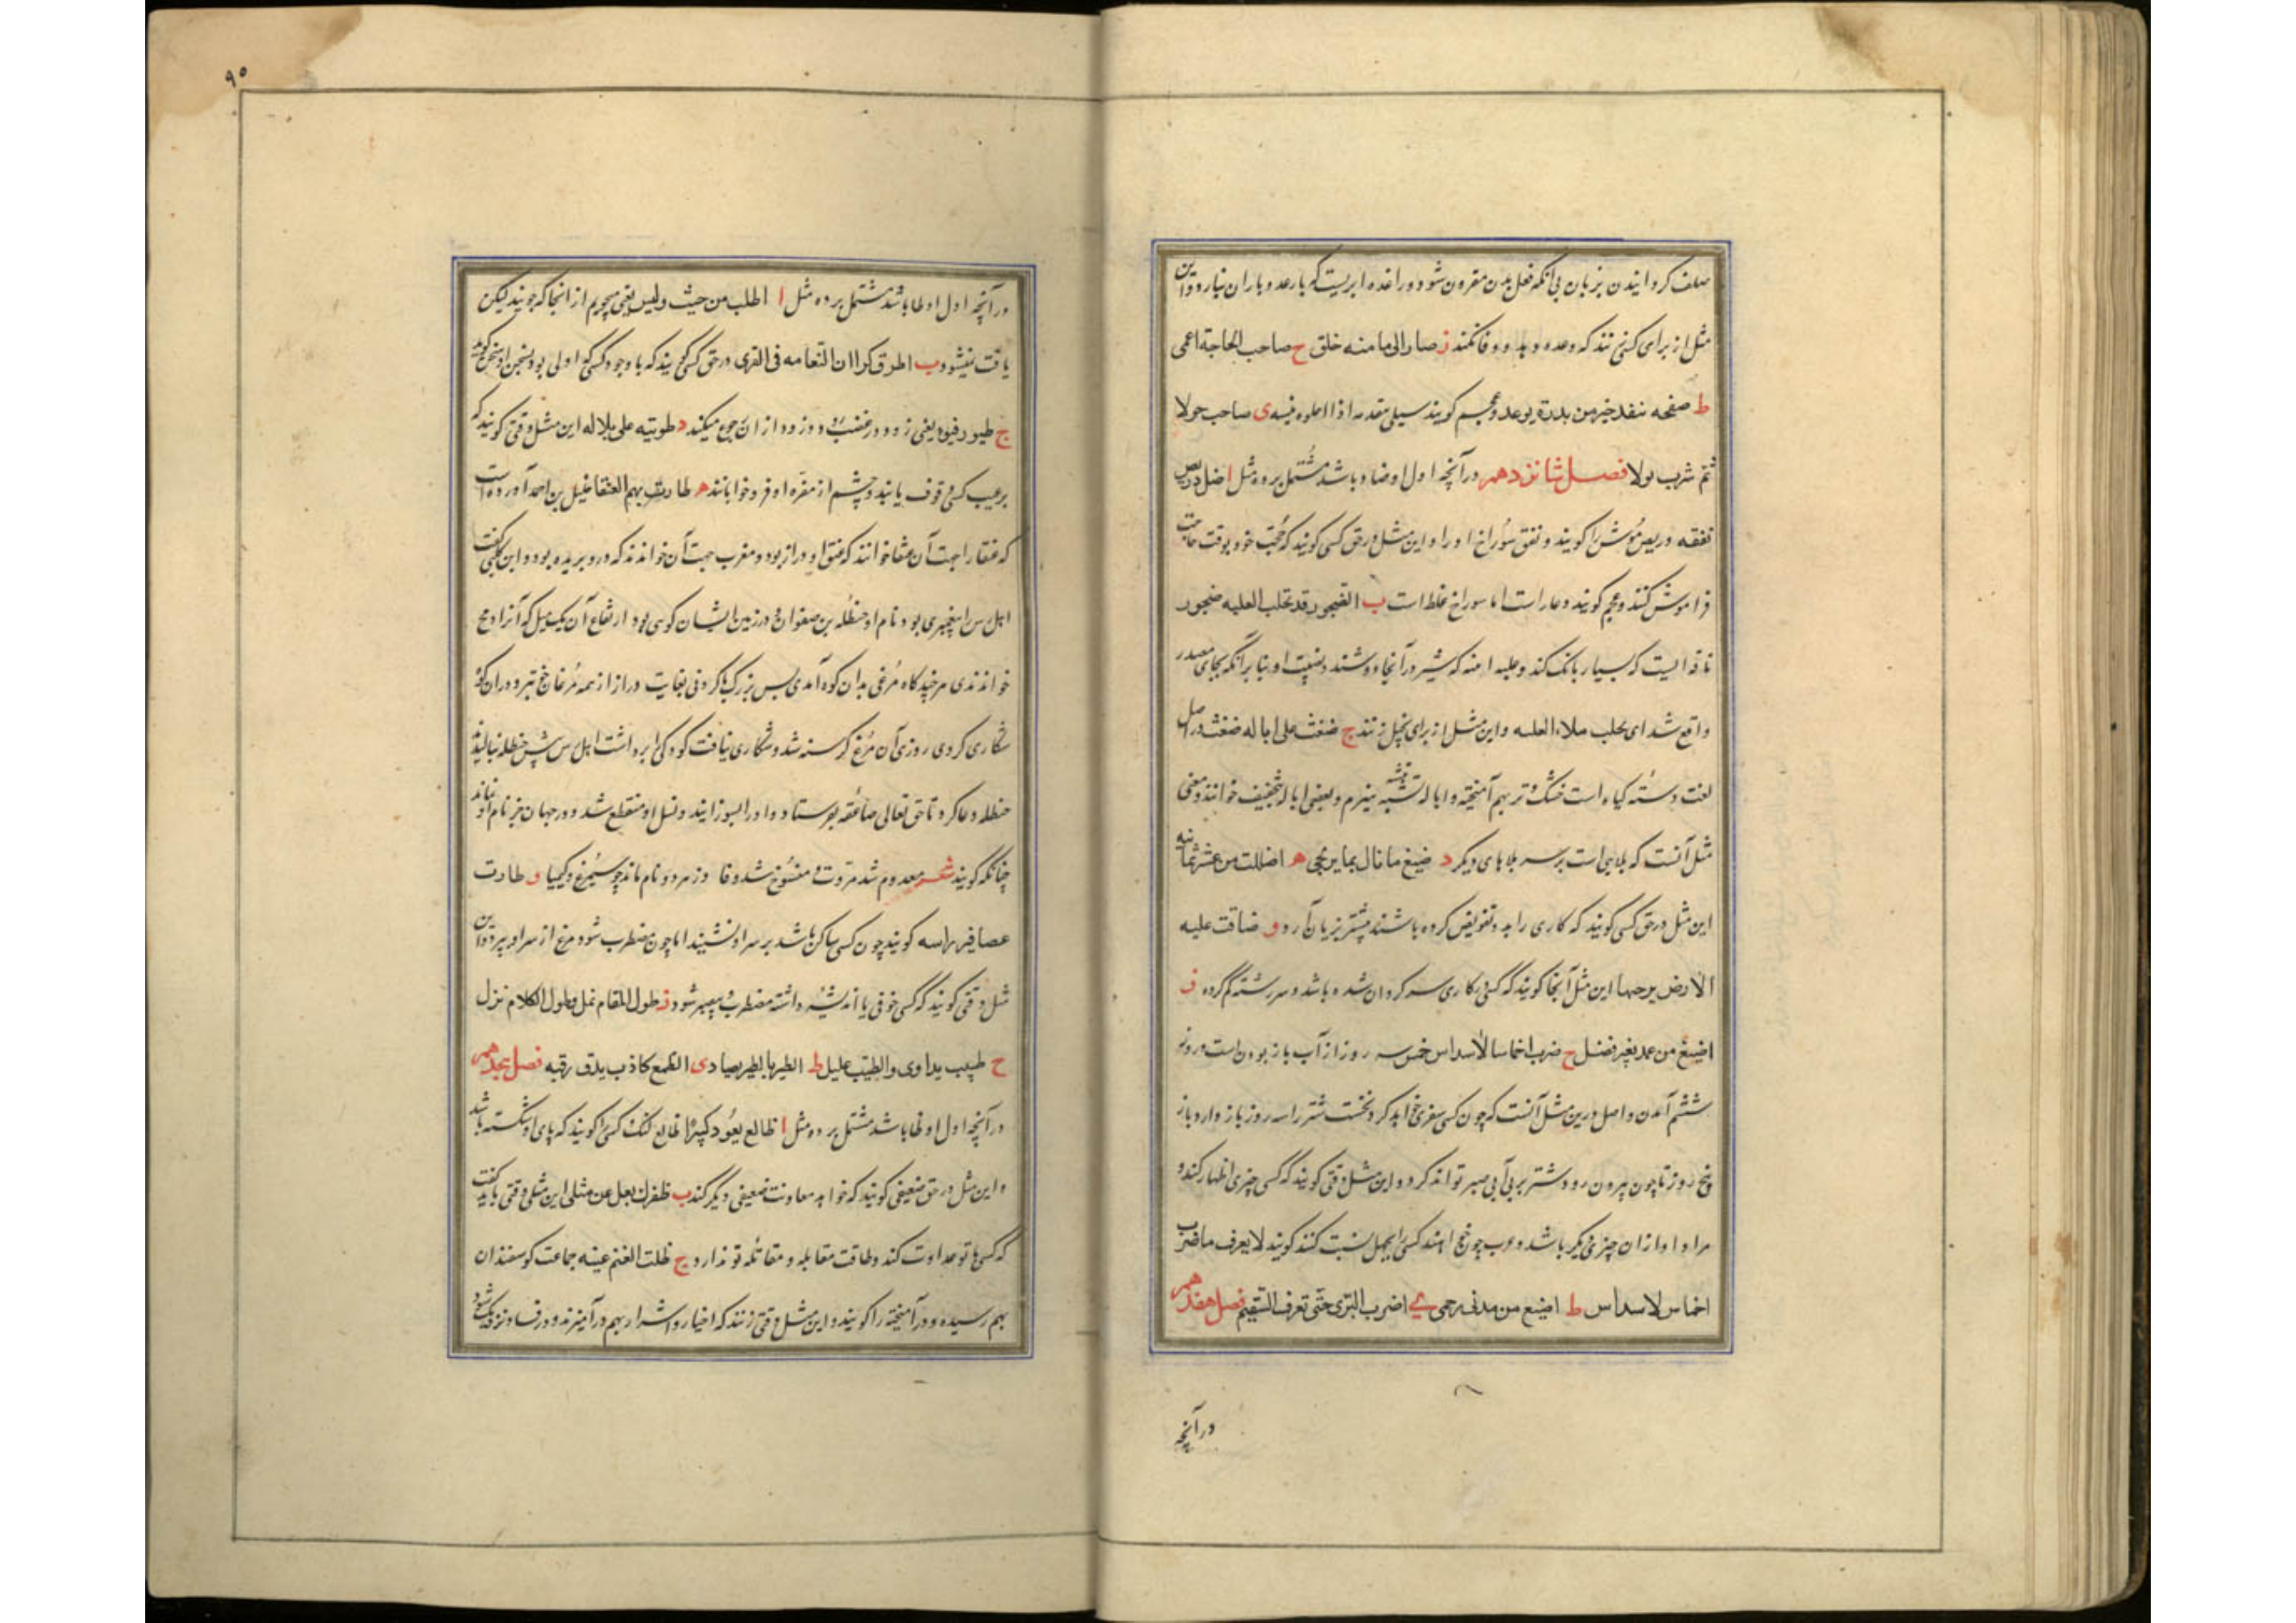 صلف کردانیدن بزبان بی آنکه فعل بدن مقرون شود و راعده ابریست که با رعد و باران نبارد و این
مثل از برای کسی زنند که وعده دهد و وفا نکند ز صار الی ما منه خلق ح صاحب الحاجة اعمی
ط صفحه نقد خیر من بدرة بوعد و عجم کویند سیلی نقد به اذا حلوه نسیه ی صاحب حولا
ثم شرب بولا فصل شانزدهم در آنچه اول او ضاد باشد مشتمل بر ده مثل ا ضل دریص
نفقه دریص موش را کویند و نفق سوراخ او را و این مثل در حق کسی کویند که حجت خود بوقت حاجت
فراموش کند و عجم کویند دعا راست اما سوراخ غلط است ب الضجور قد تحلب العلبه ضجور
ناقه ایست که بسیار بانک کند و علبه که شیر در آنجا دوشند و نصب او بنا بر آنکه بجای مصدر
واقع شد ای تحلب ملاء العلبه و این مثل از برای بخیل زنند ج ضغث علی اباله ضغث در اصل
لغت دسته کیاه است خشک و تر بهم آمیخته و اباله پشته هیزم و بعضی اباله بتخفیف خوانند و معنی
مثل آنست که بلایی است بر سر بلاهای دیکر د ضیغ ما نال بما یرتجی ه اضللت من عشر ثمانیه
این مثل در حق کسی کویند که کاری را بدو تفویض کرده باشند بیشتر بزیان آرد و ضاقت علیه
الارض برحبها این مثل آنجا کویند که کسی در کاری سرکردان شده باشد و سررشته کم کرده ز
اضیع من غمد بغیر نصل ح ضرب اخماسا لاسداس خمس سه روز از آب باز بودن است و روز
ششم آمدن و اصل درین مثل آنست که چون کسی سفری خواهد کرد نخست شتر را سه روز باز دارد باز
پنج روز تا چون بیرون رود شتر بر بی آبی صبر تواند کرد و این مثل وقتی کویند که کسی چیزی اظهار کند و
مراد او از آن چیزی دیکر باشد و عرب چون خواهند کسی را بجهل نسبت کنند کویند لا یعرف ما ضرب
اخماس لاسداس ط اضیع من بدنی رحمی ی اضرب البری حتی تعرف السقیم فصل هفدهم
در آنچه
۹۰
در آنچه اول او طا باشد مشتمل بر ده مثل ا اطلب من حیث ولیس یعنی میجویم از آنجا که جویند لیکن
یافت نمیشود ب اطرق کرا ان النعامه فی القری در حق کسی کویند که با وجود کسی که اولی بود بسخن او سخن کوید
ج طیور فیوء یعنی زود در غضب شود و زود از آن رجوع میکند د طویته علی بلاله این مثل وقتی کویند که
بر عیب کسی وقوف یابند و چشم از مقره او فرو خوابانند ه طارت بهم العنقا خلیل بن احمد آورده است
که عنقا را بجهت آن عنقا خوانند که عنق او دراز بود و مغرب جهت آن خوانند که دور پریده بود و ابن کلبی کفت
اهل رس را پیغمبری بود نام او حنظله بن صفوان و در زمین ایشان کوهی بود ارتفاع آن یک میل که آنرا دمح
خواندندی هر چندکاه مرغی بدان کوه آمدی بس بزرک با کردنی بغایت دراز از همه مرغان خوبتر و در آن کوه
شکاری کردی روزی آن مرغ کرسنه شد و شکاری نیافت کودکی را برداشت اهل رس پیش حنظله نبالیدند
حنظله دعا کرد تا حق تعالی صاعقه بفرستاد و او را بسوزانید و نسل او منقطع شد و در جهان جز نام او نماند
چنانکه کویند شعر معدوم شد مروت و منسوخ شد وفا وز هر دو نام ماند چو سیمرغ و کیمیا و طارت
عصافیر راسه کویند چون کسی ساکن باشد بر سر او نشیند اما چون مضطرب شود مرغ از سر او بپرد و این
مثل وقتی کویند که کسی خوفی یا اندیشه داشته مضطرب و میسر شود ز طول المقام نمل و طول الکلام نزل
ح طبیب یداوی و الطبیب علیل ط الطیر بالطیر یصاد ی الطمع کاذب یدق رقبه فصل هجدهم
در آنچه اول او ظا باشد مشتمل بر ده مثل ا ظالع یعود کسیرا ظالع لنک کسیر را کویند که پای او شکسته باشد
و این مثل در حق ضعیفی کویند که خواهد معاونت ضعیفی دیکر کند ب ظفرک یعل عن مثلی این مثل وقتی باید کفت
که کسی با تو عداوت کند و طاقت مقابله و مقاتله تو ندارد ج ظلت الغنم عبیثه جماعت کوسفندان
بهم رسیده و در آمیخته را کویند و این مثل وقتی زنند که اخیار و اشرار بهم درآمیزند و در فساد نزدیک شود